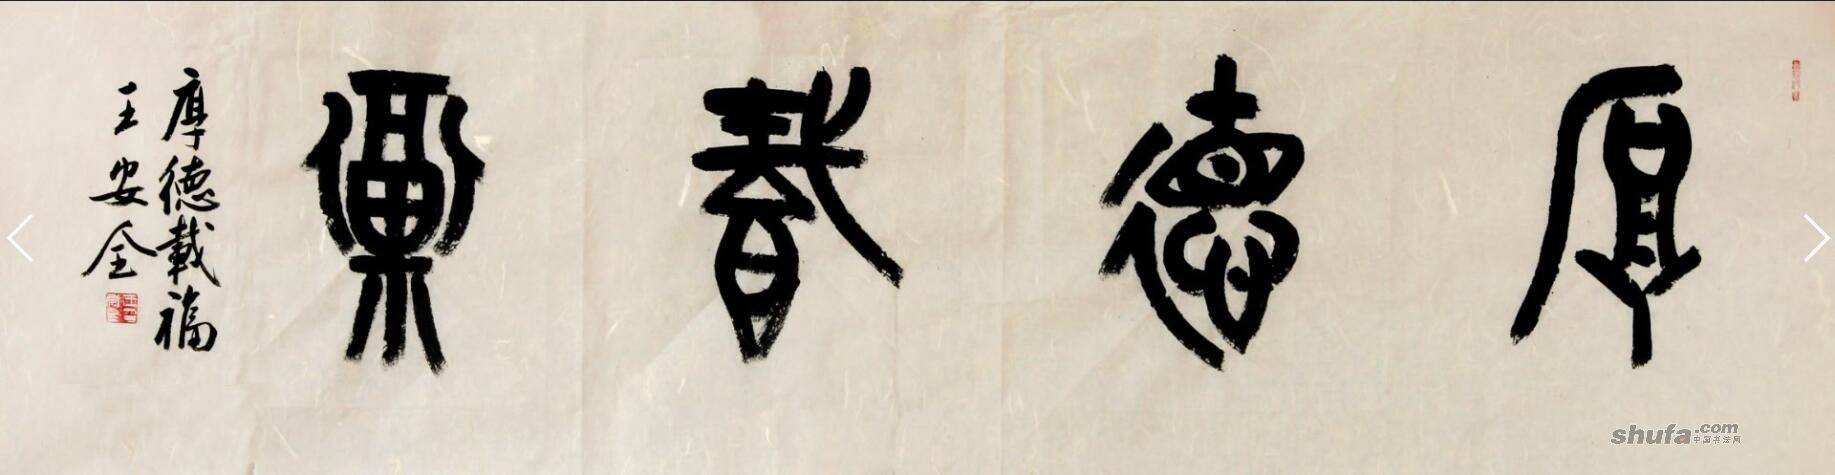 厚德載福
厚德載福
王安全
shufa.com
中国书法网